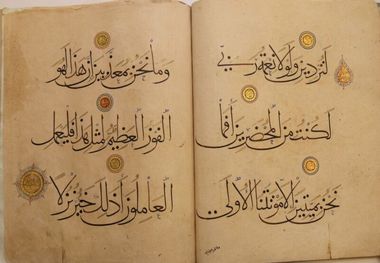 لتردين ولولا نعمة ربي
لكنت من المحضرين أفما
نحن بميتين إلا موتتنا الأولى
وما نحن بمعذبين إن هذا لهو
الفوز العظيم لمثل هذا فليعمل
العاملون أذلك خير نزلا